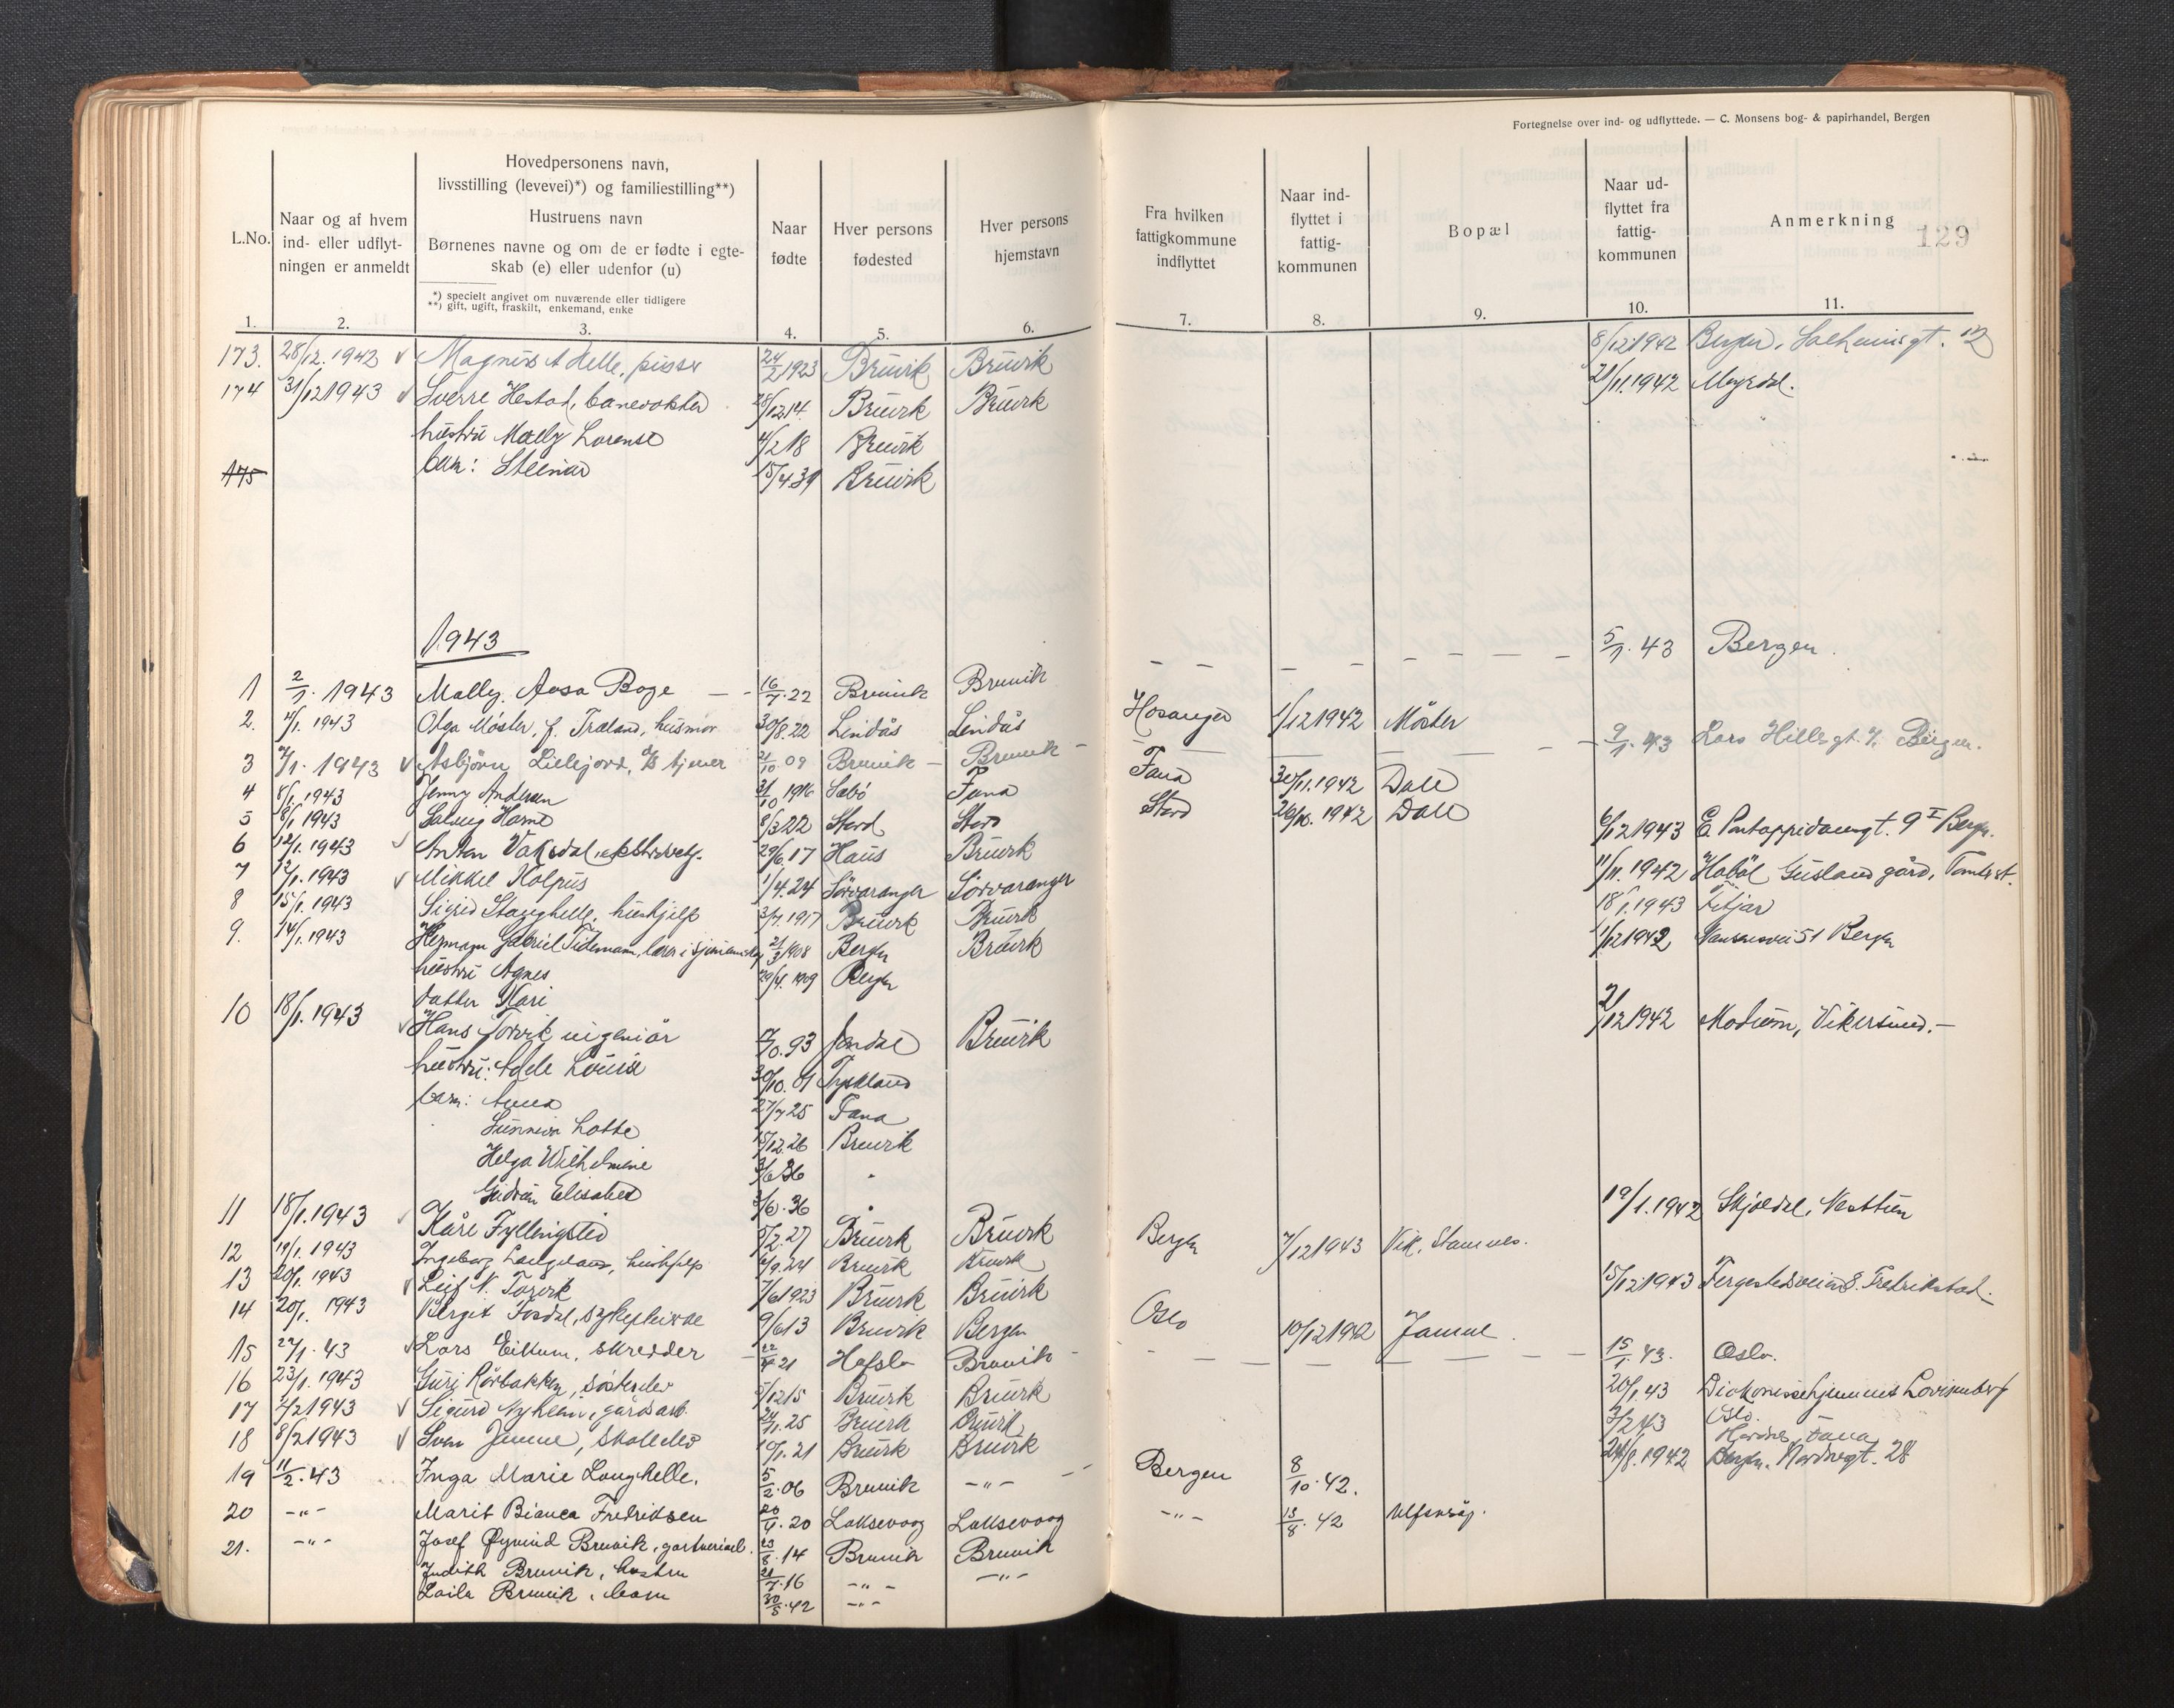 Fortegnelse over ind- og udflyttede. — C. Monsens bog- & papirhandel, Bergen
129
L.No.
Naar og af hvem ind- eller udflyt-ningen er anmeldt
Hovedpersonens navn,
livsstilling (levevei)*) og familiestilling**)
Hustruens navn
Børnenes navne og om de er fødte i egte-
skab (e) eller udenfor (u)
*) specielt angivet om nuværende eller tidligere
**) gift, ugift, fraskilt, enkemand, enke
Naar fødte
Hver persons fødested
Hver persons hjemstavn
Fra hvilken fattigkommune indflyttet
Naar ind-flyttet i fattig-kommunen
Bopæl
Naar ud-flyttet fra fattig-kommunen
Anmerkning
1. 2. 3. 4. 5. 6. 7. 8. 9. 10. 11.
173. 28/12.1942 Magnus A Helle, 24/2 1923 Bruvik Bruvik 8/12 1942 Bergen,
174 31/12 1943 Sverre Hestad, banevokter 28/12 14 Bruvik Bruvik 21/11.1942 Myrdal.
hustru Mally Lorense 4/2 18 Bruvik
175 barn: Steinar 15/4 39 Bruvik
1943
1 2/1. 1943 Mally Aasa Boge — - 16/7.22 Bruvik Bruvik - - - - - - - - - 5/1. 43 Bergen.
2. 4/1. 1943 Olga Möster, f. Træland, husmor 30/8.22 Lindås Lindås Hosanger 1/12 1942 Möster
3 7/1. 1943 Asbjörn Lillejord, 21/10 09 Bruvik — Bruvik - — — — - - 9/1. 43 Lars Hillesgt. Bergen.
4 8/1.1943 Jenny Andersen 31/10 1916 Sæbö Fana Fana 30/11.1942 Dale
5 8/1 1943 Solveig Horne 8/3 22 Stord Stord Stord 26/10. 1942 Dale
6 12/1.1943 Anton Vaksdal, 29/6.17 Haus Bruvik 6/12 1943 C. Pontoppidansgt. 9 I Bergen.
7 12/1.1943 Mikkel Kolpus 1/4.24 Sörvaranger Sörvaranger 11/11.1942 Hoböl Gusland gård, Tomter st.
8 15/1.1943 Sigrid Stanghelle, hushjelp 3/7.1917 Bruvik Bruvik 18/1.1943 Fitjar
9. 14/1.1943 Hermann Gabriel Tidemann, lærer i 21/3 1908 Bergen Bruvik 1/12 1942 Nansensvei 51 Bergen
hustru Agnes 29/4. 1909 Bergen
datter Kari
10 18/1.1943 Hans Torvik ingeniör 93 Jondal Bruvik 2/12 1942 Modum, Vikersund.—
hustru: Adele Louise 30/10. 01 Tyskland
barn: Anna 27/7 25 Fana
Sunniva Lotte 15/12.26 Bruvik
Helga Wilhelmine 3/6 36 "
Gudrun Elisabet 3/6.36 "
11 18/1.1943 Kåre Fyllingslid 5/2.27 Bruvik Bruvik 19/1.1942 Skjoldal, Nesttun
12 19/1.1943 Ingeborg Langeland, hushjelp 4/9.24 Bruvik Bruvik Bergen 7/12 1943 Vik, Stamnes.
13 20/1.1943 Leif N. Torvik 7/6 1923 Bruvik Bruvik 15/12 1943 Fergestedsveien 8. Fredrikstad.
14 20/1. 1943 Bergit Fosdal, sykepleierske 9/6 13 Bruvik Bergen Oslo 10/12 1942 Jamne.
15 22/1.43 Lars Eikum, skredder — 22/4 21 Hafslo Bruvik - - - - - - - - 15/1. 43. Oslo.
16 23/1.1943 Guri Rörbakken, søsterelev 5/12 15 Bruvik Bruvik 20/1.43 Diakonissehjemmet Lovisenberg Oslo.
17 2/2 1943 Sigurd Nyheim, gårdsarb. 24/11.25 Bruvik Bruvik 3/2 43 Hordnes, Fana
18 8/2 1943 Sven Jamne, skoleelev 19/1.21 Bruvik Bruvik 24/8.1942 Bergen. Nordregt. 28
19 11/2.43 Inga Marie Langhelle. 5/2.06 Bruvik -"- Bergen 8/10.42.
20 -"- Marit Bianca Fredriksen 20/4.20 Laksevaag Laksevaag -"- 13/8.42
21. -"- Josef Øyvind Bruvik, 23/8.14 Bruvik Bruvik
Judith Bruvik, hustru 21/7.16 -"- -"-
Laila Bruvik, barn 30/5.42 -"-